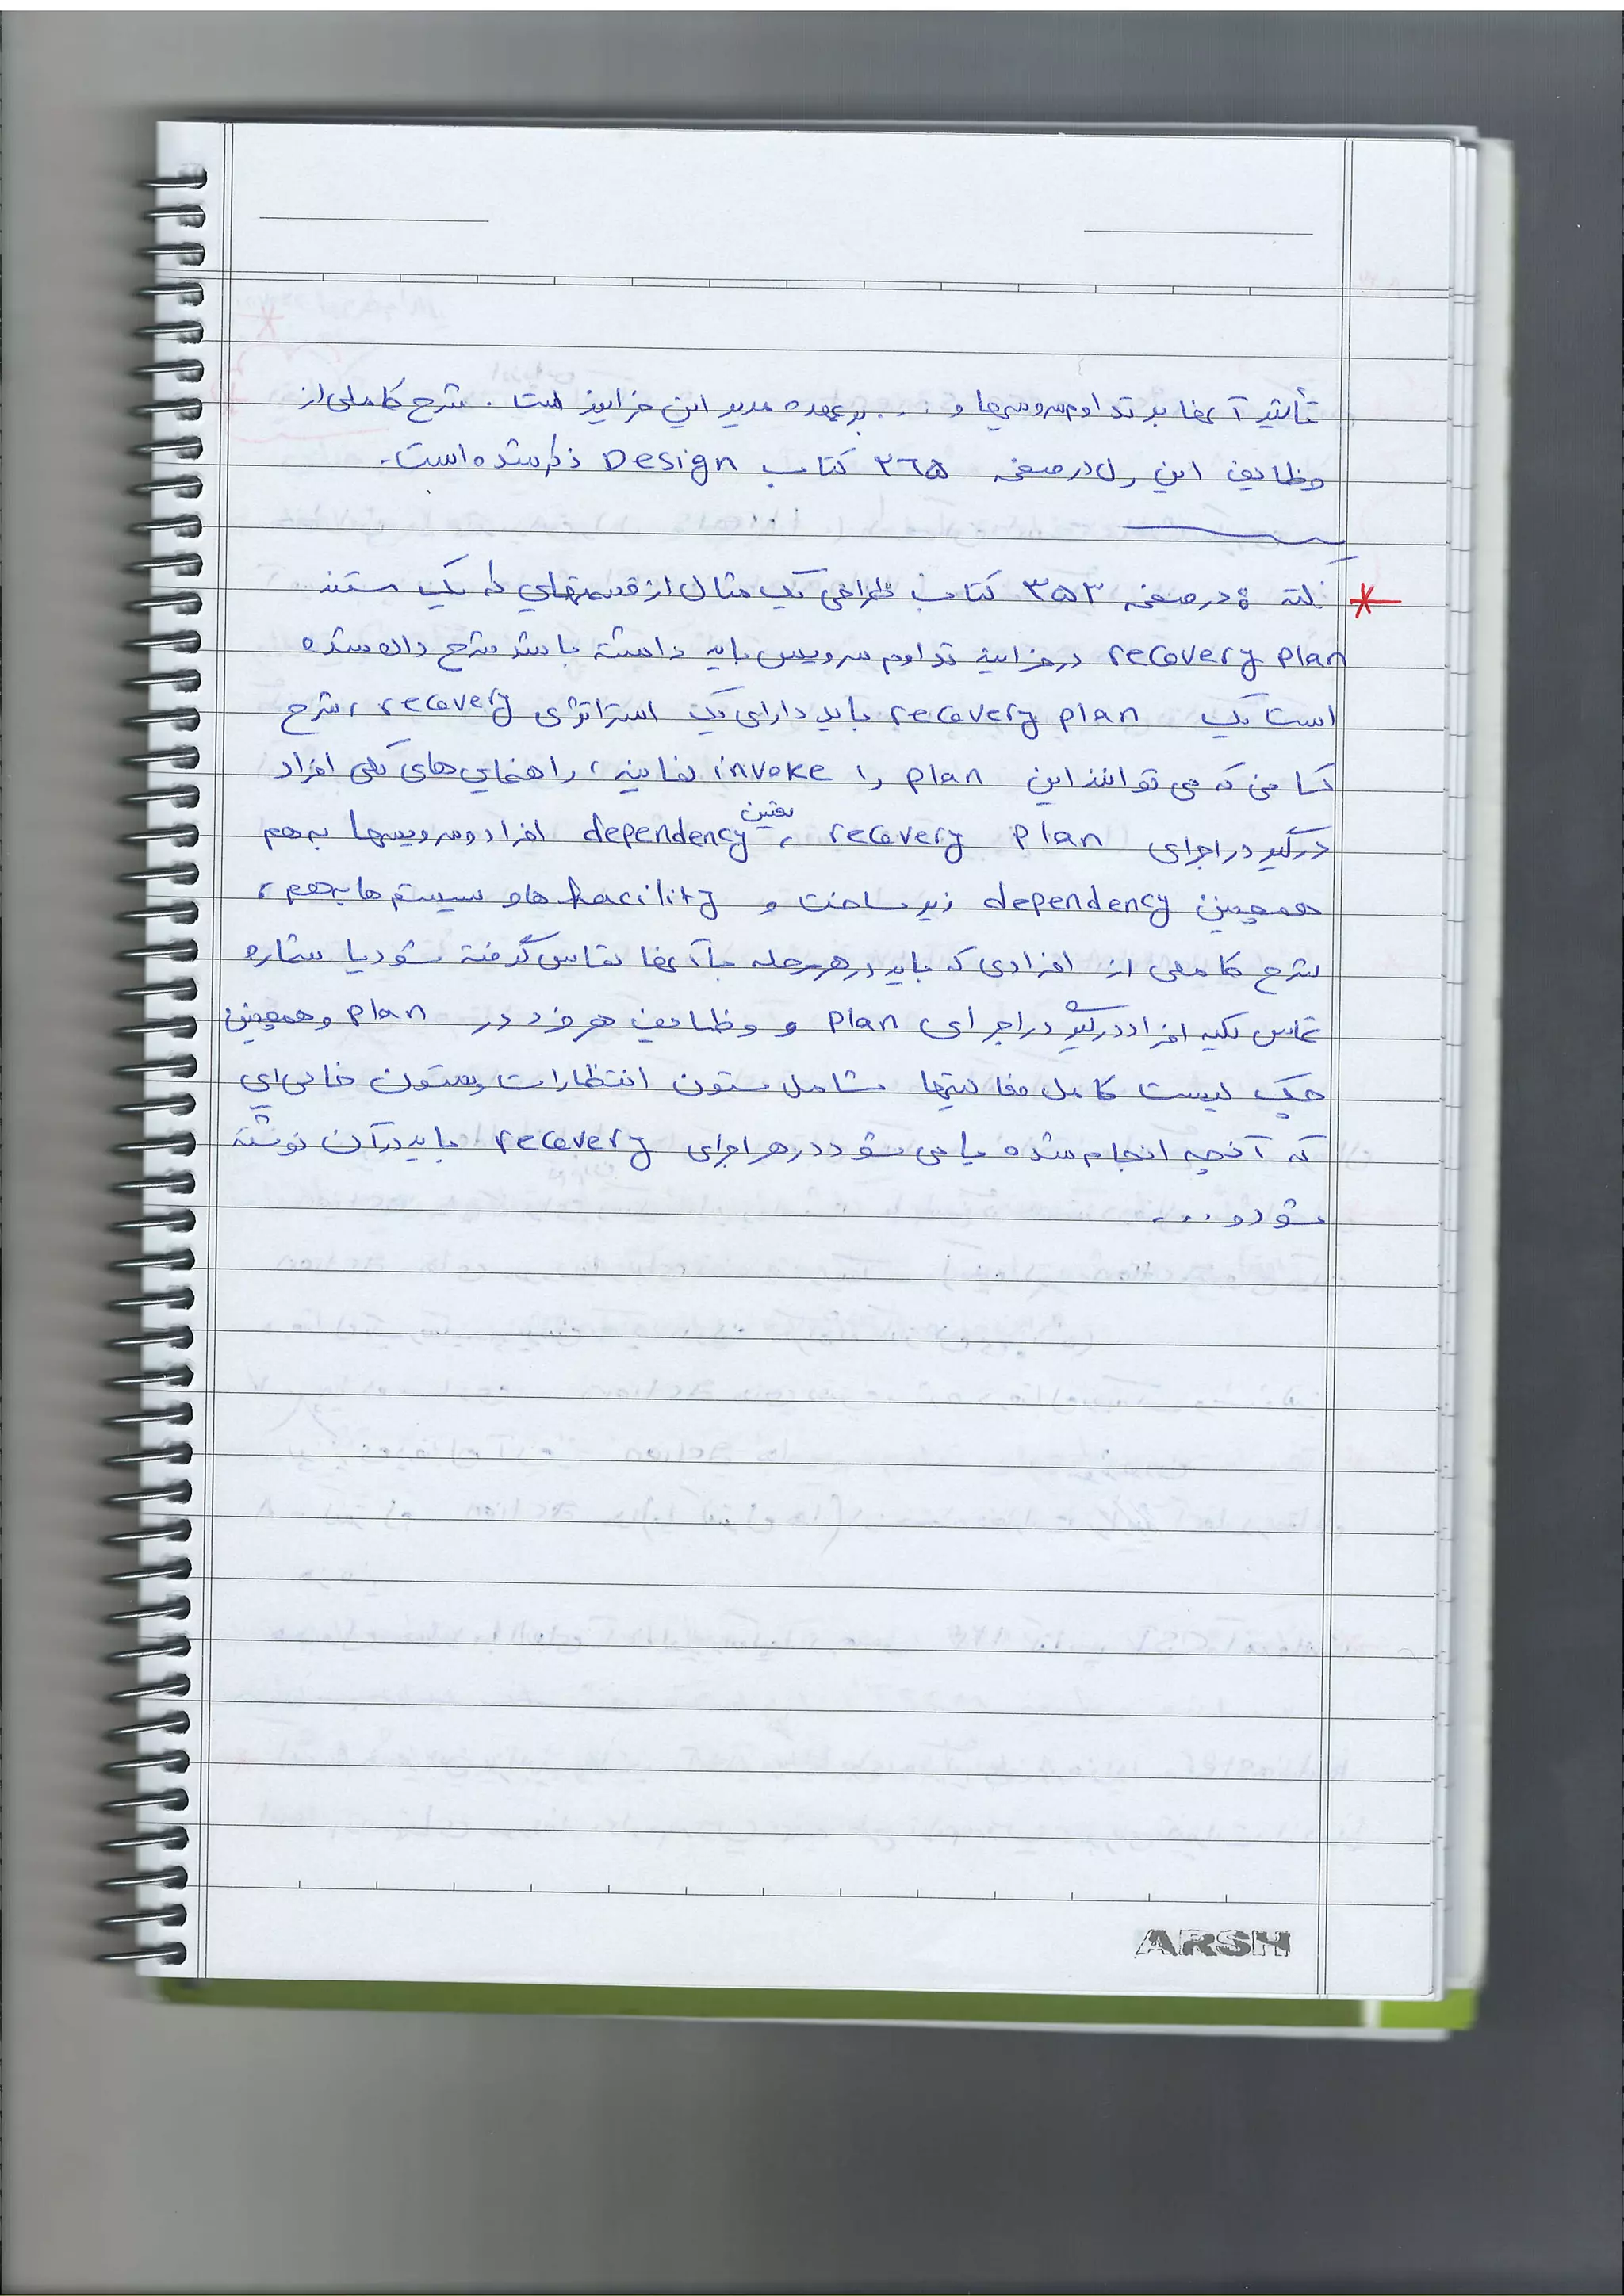 تأثیر آنها بر تداوم سرویسها و ... بر عهده مدیر این فرایند است. شرح کاملی از
وظایف این رل در صفحه ۲۶۵ کتاب Design ذکر شده است.
* نکته : در صفحه ۳۵۳ کتاب طراحی یک مثال از قسمتهایی که یک مستند
recovery plan در فرایند تداوم سرویس باید داشته باشد شرح داده شده
است یک recovery plan باید دارای یک استراتژی recovery ، شرح
کسانی که می توانند این plan را invoke نمایند ، راهنمایی های کلی افراد
درگیر در اجرای recovery plan ، تعیین dependency افراد و سرویسها به هم
همچنین dependency زیرساخت و facility ها و سیستم ها به هم ،
شرح کاملی از افرادی که باید در هر مرحله با آنها تماس گرفته شود یا شماره
تماس کلیه افراد درگیر در اجرای plan و وظایف هر فرد در plan و همچنین
چک لیست کامل فعالیتها شامل ستون انتظارات و ستون خالی ای
که آنچه انجام شده یا می شود در هر اجرای recovery باید در آن نوشته
شود و ...
ARSH